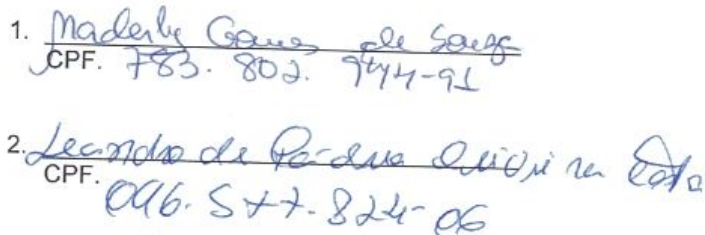 1. Maderly Gomes de Souza
CPF. 783. 802. 944-91
2. Leandro de Pádua Oliveira
CPF. 046. 577. 824-06